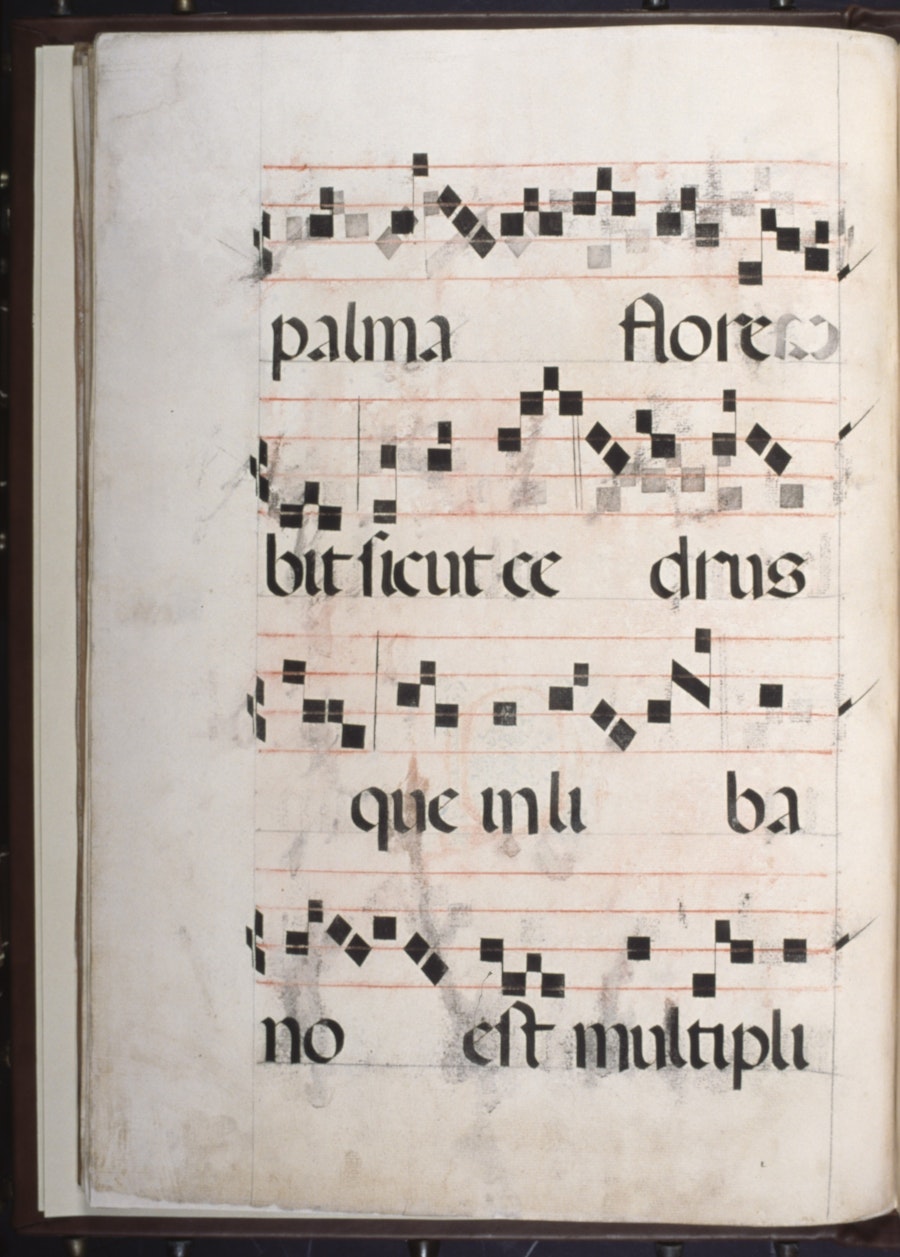 palma flore
bit sicut ce drus
que in li ba
no est multipli